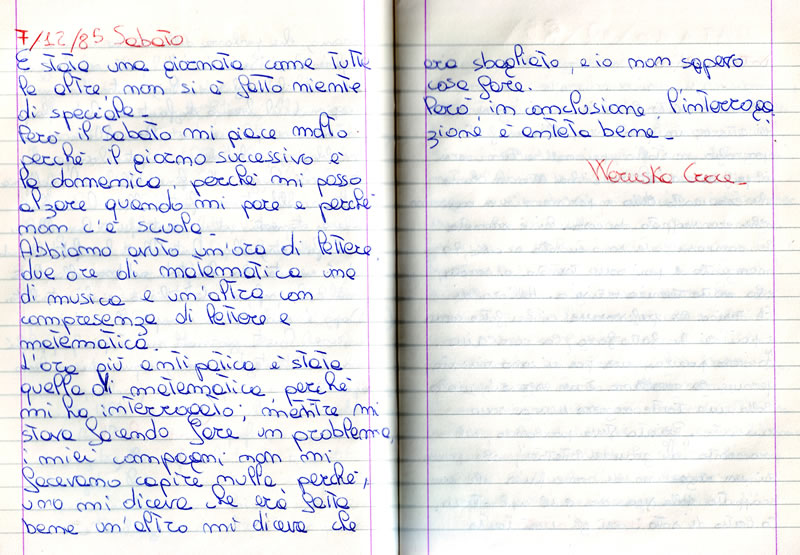 7/12/85 Sabato
È stata una giornata come tutte
le altre non si è fatto niente
di speciale.
Però il Sabato mi piace molto
perché il giorno successivo è
la domenica, perché mi posso
alzare quando mi pare e perché
non c'è scuola.
Abbiamo avuto un'ora di lettere
due ore di matematica una
di musica e un'altra con
compresenza di lettere e
matematica.
L'ora più antipatica è stata
quella di matematica, perché
mi ha interrogato; mentre mi
stava facendo fare un problema,
i miei compagni non mi
facevano capire nulla perché,
uno mi diceva che era fatto
bene un'altro mi diceva che
era sbagliato, e io non sapevo
cosa fare.
Però, in conclusione, l'interroga
zione è andata bene.
Weruska Croce